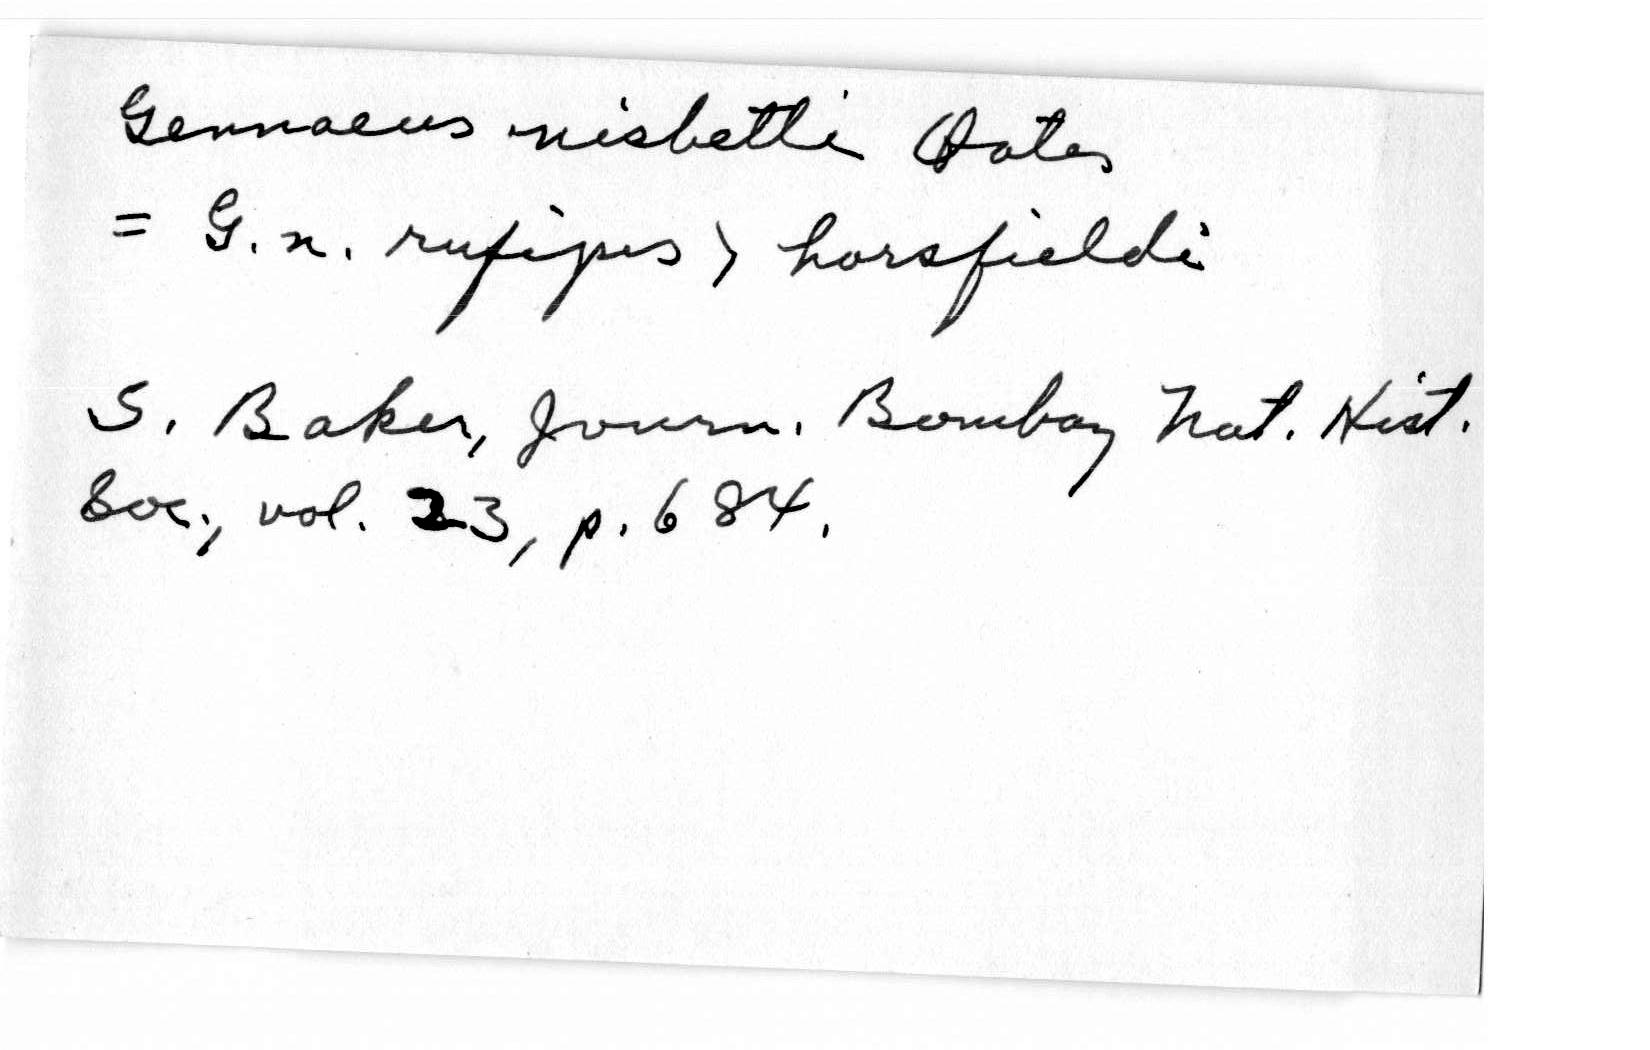 Gennaeus nisbetti Oates
= G. n. rufipes > horsfieldi
S. Baker, Journ. Bombay Nat. Hist.
Soc., vol. 23, p. 684.